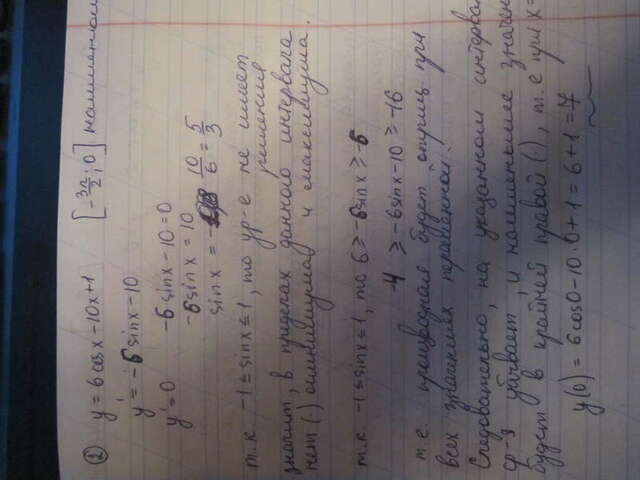 ② y = 6cosx − 10x + 1 [−3π/2; 0] наименьш
y' = −6 sinx − 10
y' = 0 −6 sinx − 10 = 0
−6 sinx = 10
sinx = − 10/6 = 5/3
т.к. −1 ≤ sinx ≤ 1, то ур-е не имеет
решения
значит, в пределах данного интервала
нет (·) минимума и максимума.
т.к. −1 ≤ sinx ≤ 1, то 6 ≥ −6sinx ≥ −6
−4 ≥ −6sinx − 10 ≥ −16
т.е. производная будет отриц. при
всех значениях переменной.
Следовательно, на указанном интервал
ф-я убывает, и наименьшее значен
будет в крайней правой (·), т.е при x =
y(0) = 6cos0 − 10·0 + 1 = 6 + 1 = 7